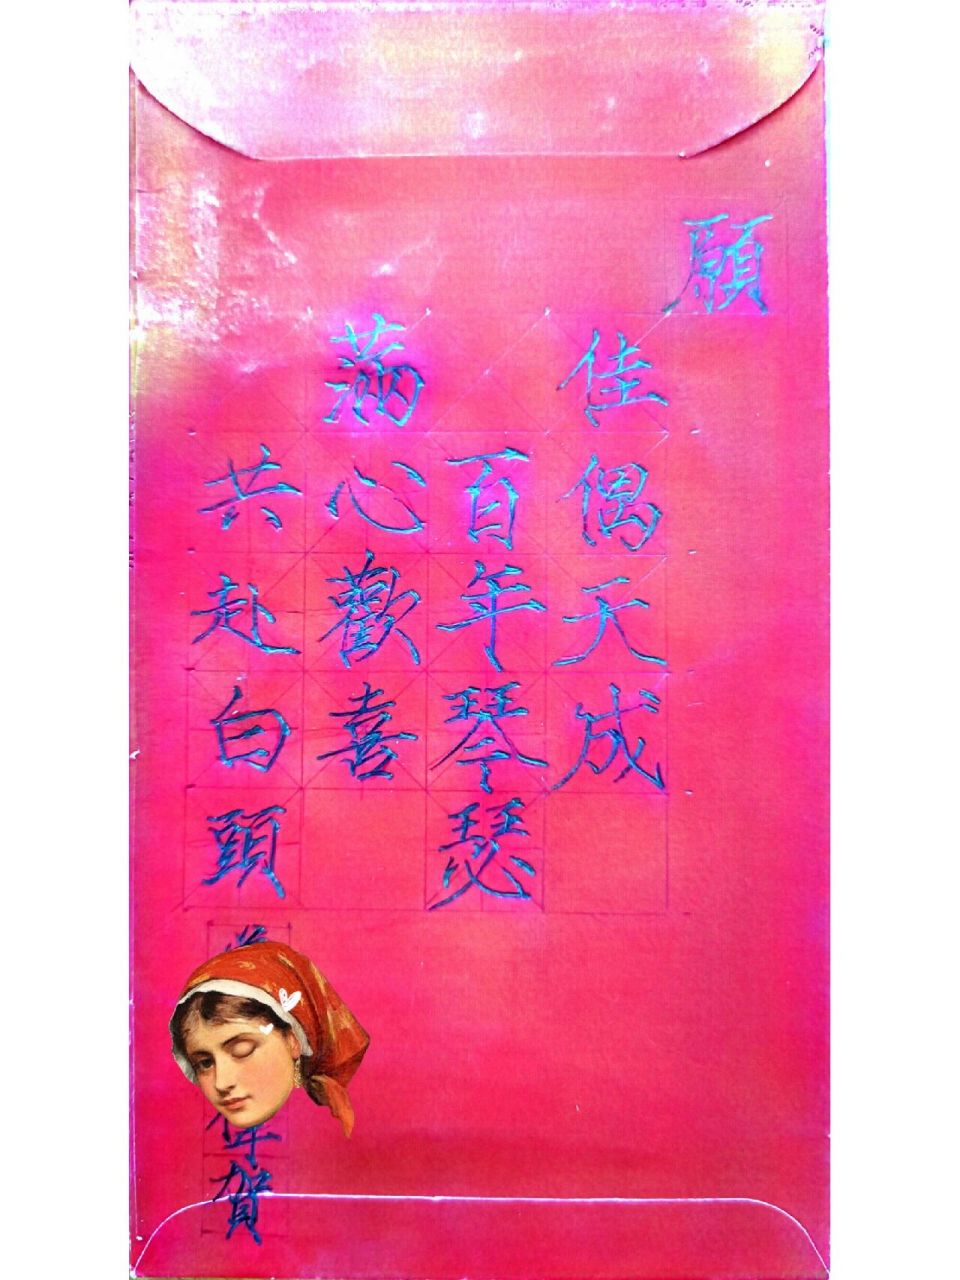 願
佳偶天成
百年琴瑟
滿心歡喜
共赴白頭
賀